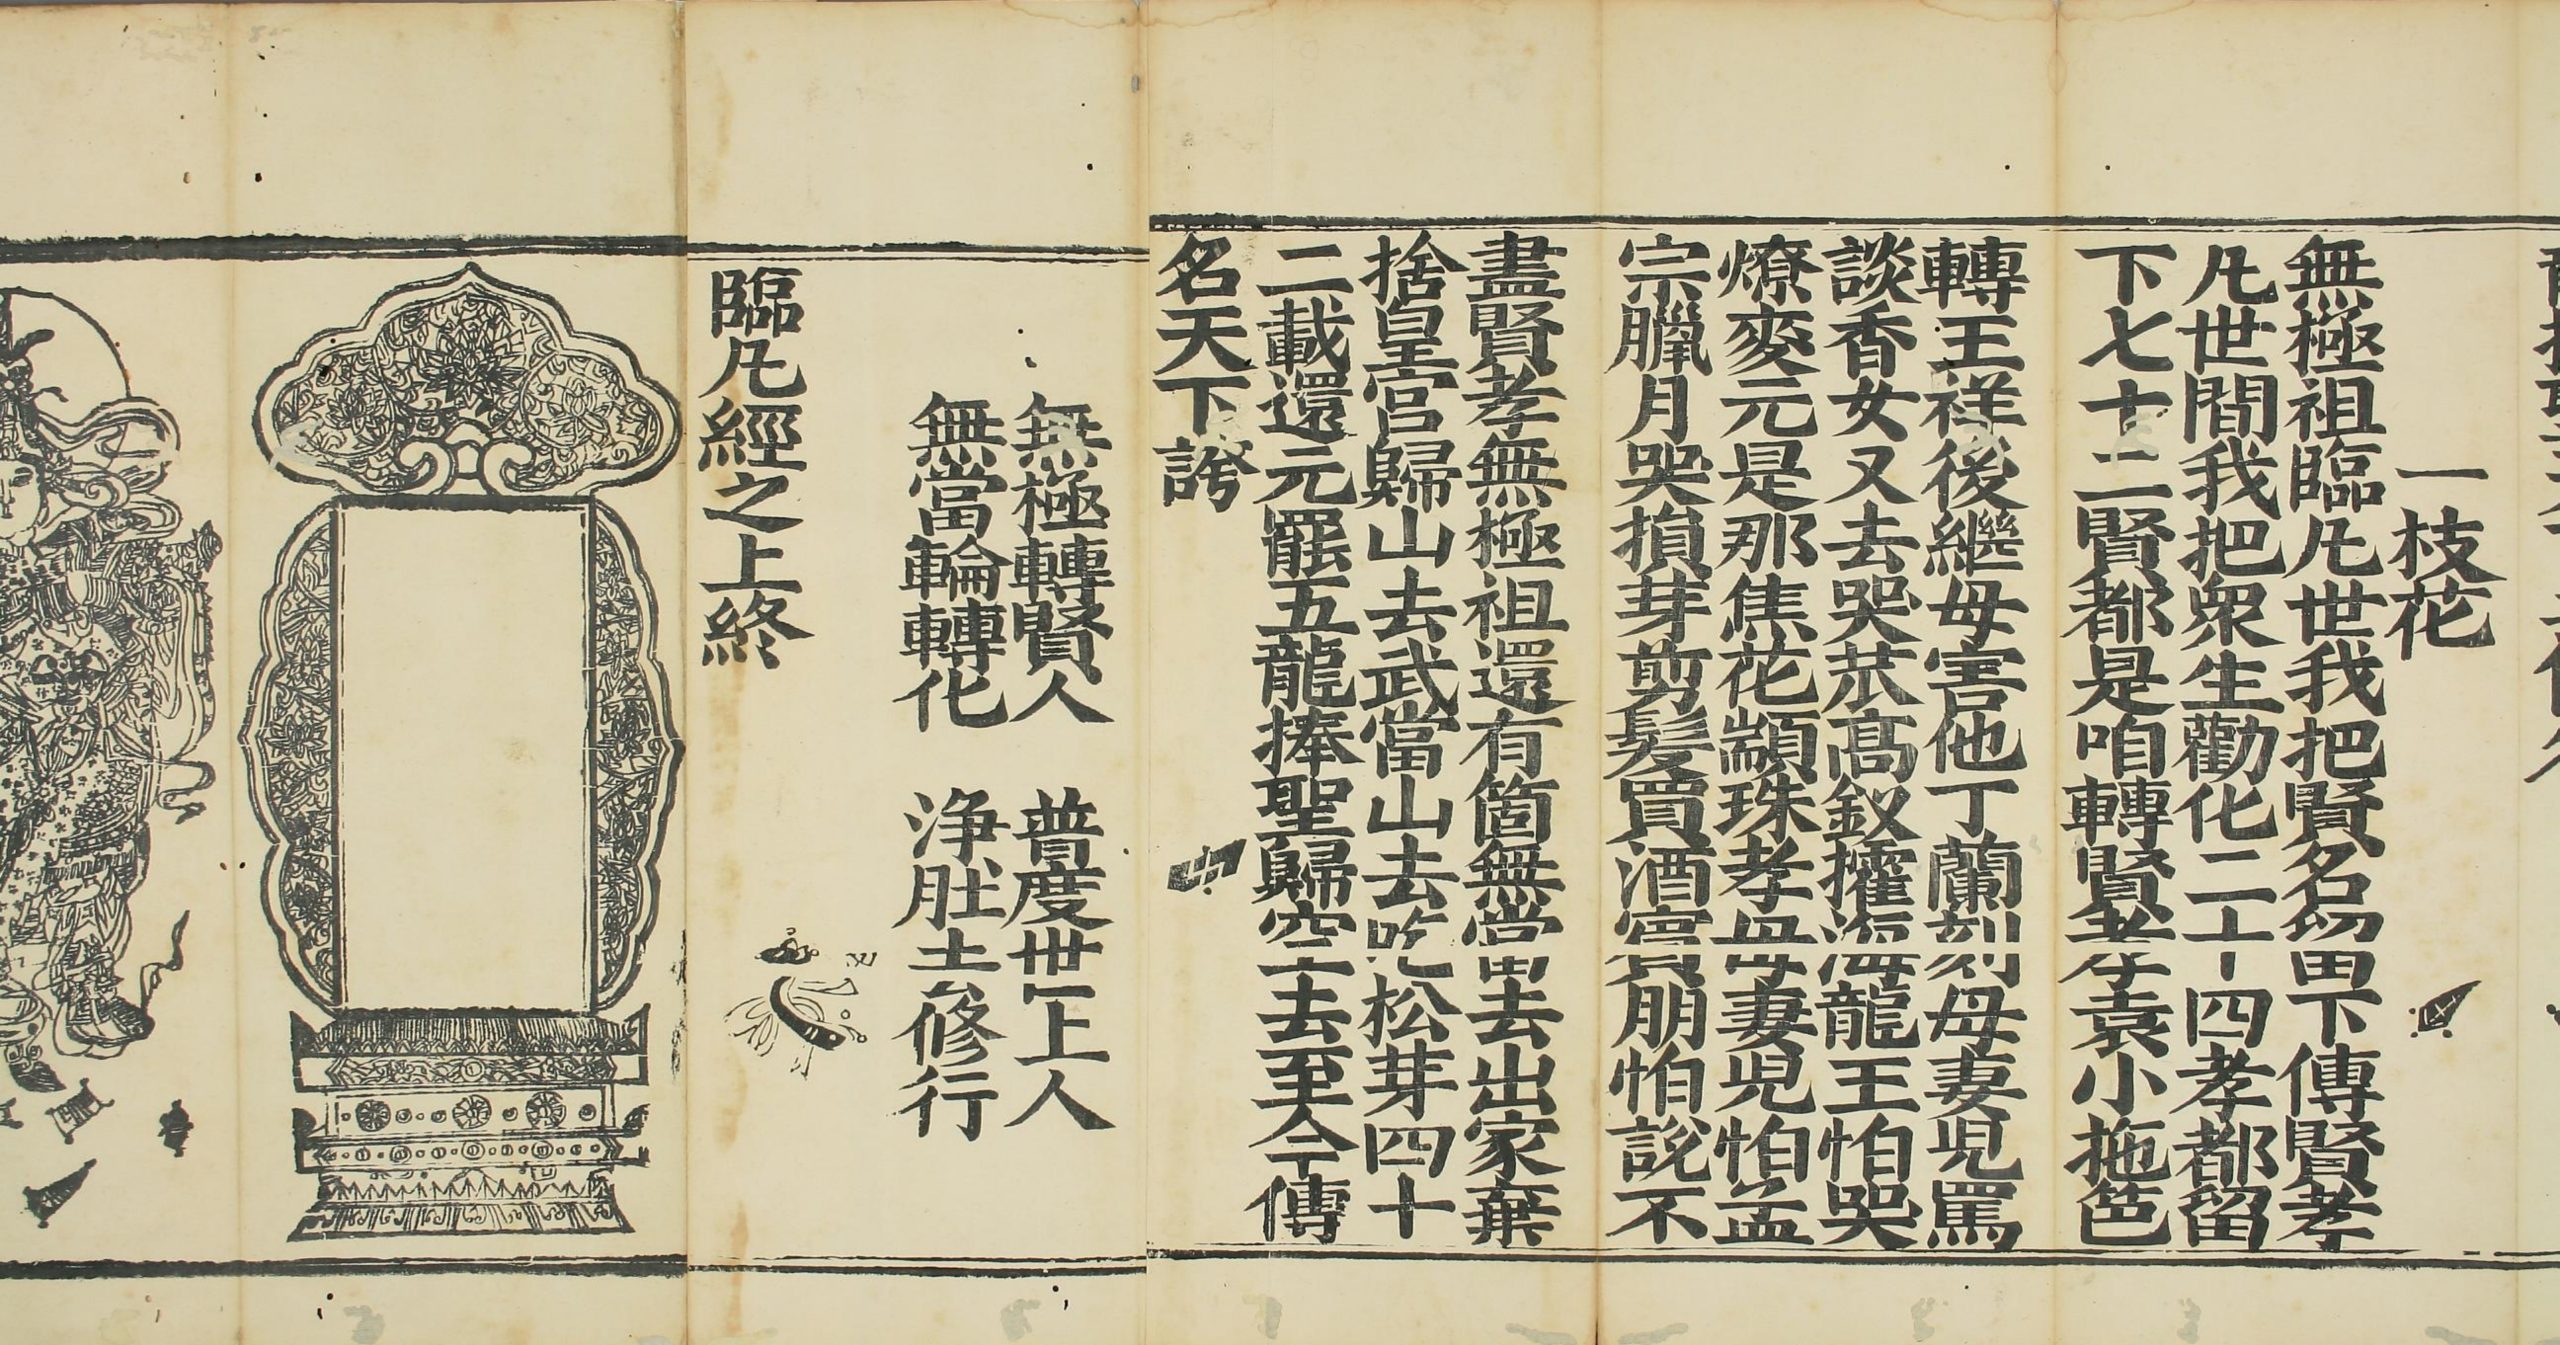 一枝花
無極祖臨凡世我把賢名留下傳賢孝
凡世間我把衆生勸化二十四孝都留
下七十二賢都是咱轉賢孝袁小拖笆
轉王祥後繼母害他丁蘭刻母妻児罵
談香女又去哭苶髙釵攉海龍王怕哭
燎麥元是那焦花顓珠孝母妻児怕孟
宗臘月哭損芽剪髪賈酒賓朋怕説不
盡賢孝無極祖還有箇無當去出家棄
捨皇宫歸山去武當山去吃松芽四十
二載還元罷五龍捧聖歸空去至今傳
名天下誇
無極轉賢人 普度世上人
無當輪轉化 浄土修行
臨凡經之上終